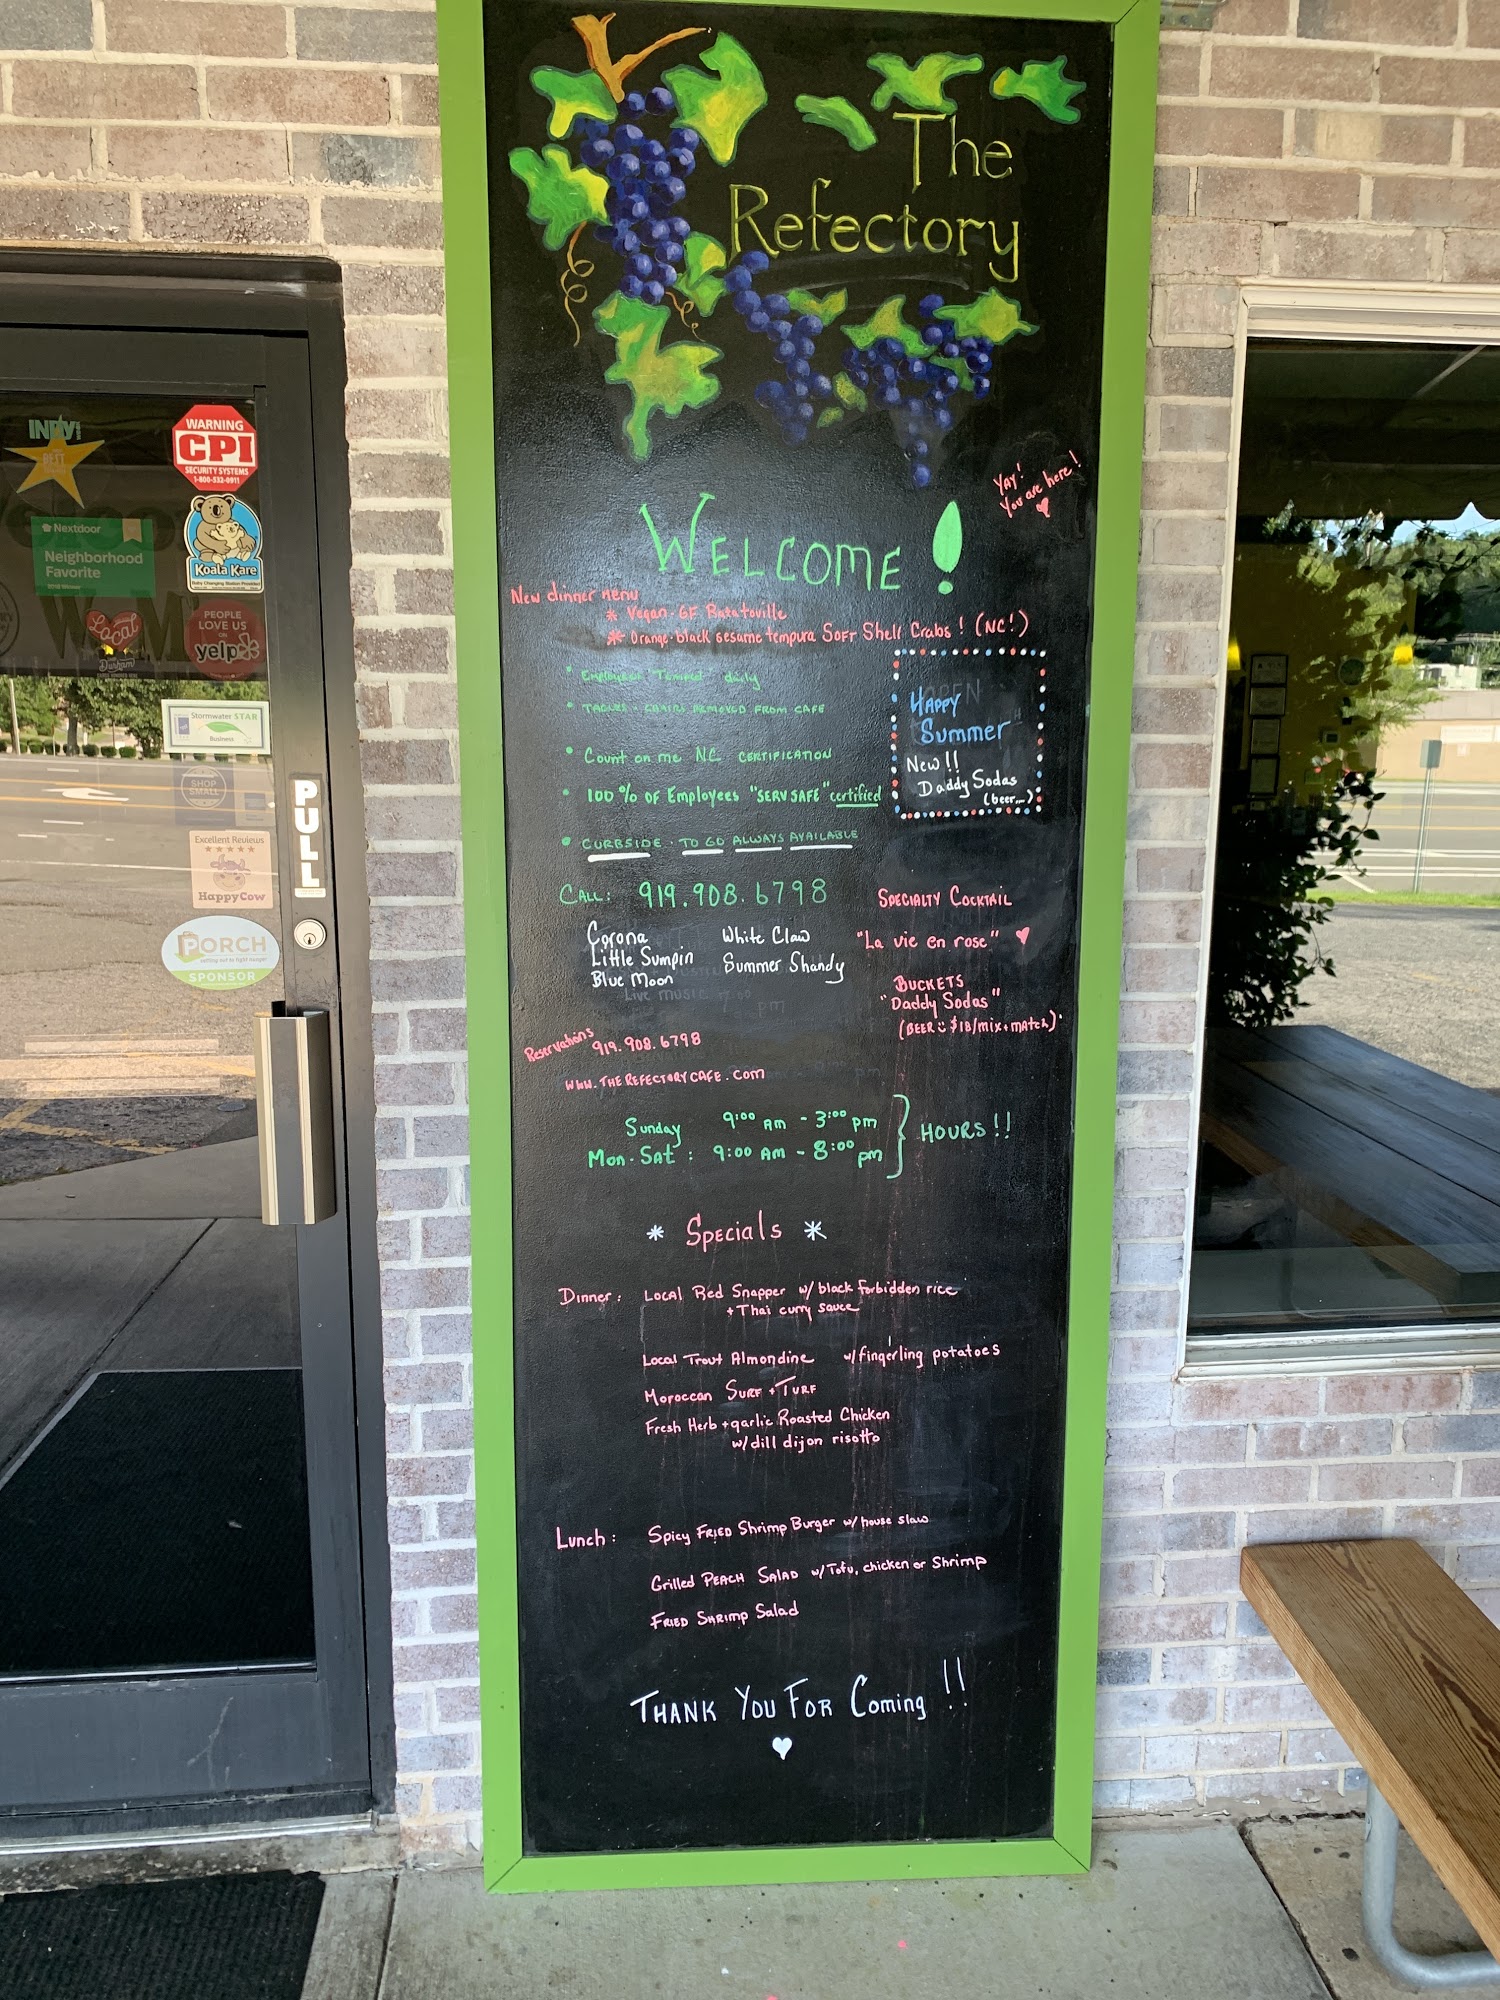 The
Refectory
YAY!
You are here!
WELCOME!
New dinner menu
* Vegan · GF Ratatoville
* Orange · black sesame tempura Soft Shell Crabs! (NC!)
• Employees Temped daily
• TABLES + CHAIRS REMOVED FROM CAFE
• Count on me NC CERTIFICATION
• 100% OF Employees "SERV SAFE" certified
• CURBSIDE · TO GO ALWAYS AVAILABLE
Happy
Summer
New!!
Daddy Sodas
(beer...)
CALL: 919.908.6798
Corona
Little Sumpin
Blue Moon
White Claw
Summer Shandy
Specialty Cocktail
"La vie en rose"
BUCKETS
"Daddy Sodas"
(BEER $18/mix+match)
Live music
pm
Reservations
919.908.6798
www.therefectorycafe.com
Sunday 9:00 AM - 3:00 pm
Mon · Sat : 9:00 AM - 8:00 pm
HOURS!!
* Specials *
Dinner: Local Red Snapper w/ black forbidden rice
+ Thai curry sauce
Local Trout Almondine w/ fingerling potatoes
Moroccan SURF + TURF
Fresh Herb + garlic Roasted Chicken
w/ dill dijon risotto
Lunch: Spicy FRIED Shrimp Burger w/ house slaw
Grilled PEACH SALAD w/ Tofu, chicken or Shrimp
FRIED SHRIMP Salad
THANK YOU FOR Coming!!
INDY
BEST
WARNING
CPI
SECURITY SYSTEMS
1-800-532-0911
Nextdoor
Neighborhood
Favorite
Koala Kare
Baby Changing Station Provided
Local
Durham
PEOPLE
LOVE US
ON
yelp
Stormwater STAR
Business
SHOP
SMALL
PULL
Excellent Reviews
HappyCow
PORCH
SPONSOR